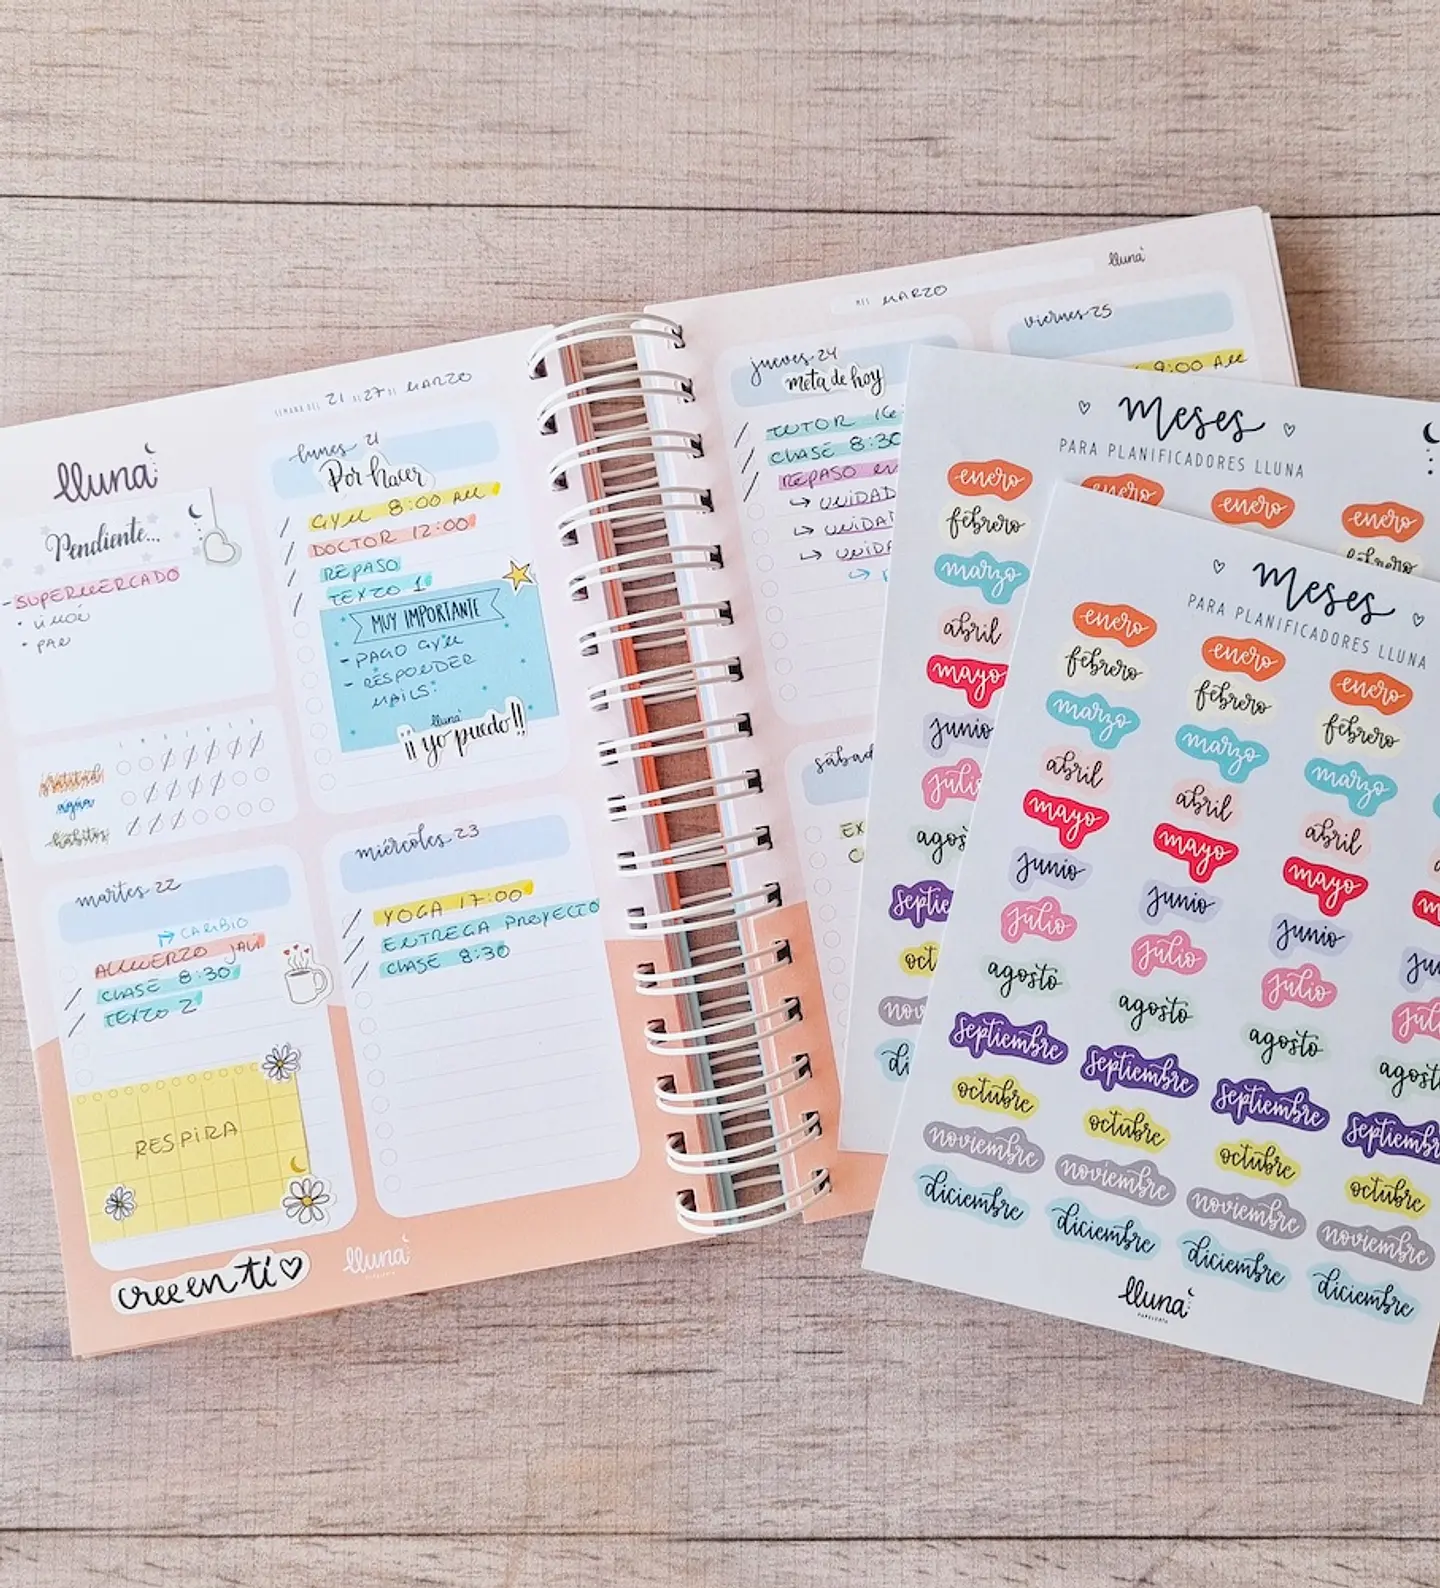 SEMANA DEL 21 AL 27 DE MARZO
lluna
Pendiente...
- SUPERMERCADO
• LIMÓN
• PAN
gratitud
agua
hábitos
lunes 21
Por hacer
GYM 8:00 AM
DOCTOR 12:00
REPASO
TEXTO 1
MUY IMPORTANTE
- PAGO GYM
- RESPONDER
MAILS.
lluna
¡¡ yo puedo!!
martes 22
CAMBIO
ALMUERZO JAVI
CLASE 8:30
TEXTO 2
RESPIRA
cree en tí
lluna
miércoles 23
YOGA 17:00
ENTREGA PROYECTO
CLASE 8:30
MES MARZO
lluna
jueves 24
meta de hoy
TUTOR 16:
CLASE 8:30
REPASO
→ UNIDAD
→ UNIDA
→ UNIDA
viernes 25
9:00 AM
sábad
Meses
PARA PLANIFICADORES LLUNA
enero enero enero enero
febrero febrero
marzo
abril
mayo
junio
juli
agos
septie
oct
nov
di
Meses
PARA PLANIFICADORES LLUNA
enero enero enero
febrero febrero febrero
marzo marzo marzo
abril abril abril
mayo mayo mayo m
junio junio junio ju
julio julio julio jul
agosto agosto agosto agost
septiembre septiembre septiembre septiembr
octubre octubre octubre octubre
noviembre noviembre noviembre noviembre
diciembre diciembre diciembre diciembre
lluna
PAPELERÍA